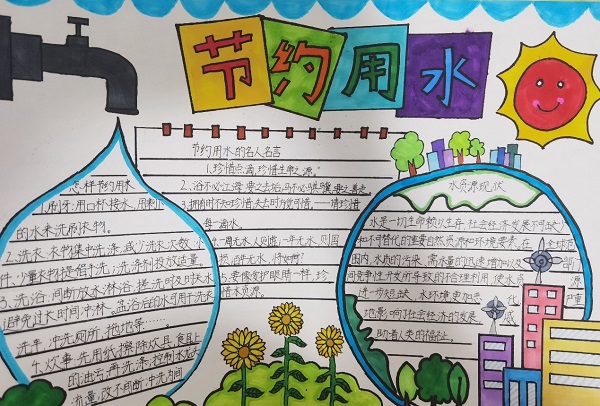 节约用水
节约用水的名人名言
1.珍惜点滴,珍惜生命之源。
2.浴不必江海,要之去垢;马不必骐骥,要之善走。
3.拥有时不知珍惜失去时方觉可惜。——请珍惜
每一滴水。
4.一周无水人则虚;一年无水,则国
5.要像爱护眼睛一样,珍
惜水资源。
怎样节约用水
1.刷牙:用口杯接水,用剩
的水来洗刷衣物。
2.洗衣:衣物集中洗涤,减少洗衣次数,小
件、少量衣物提倡手洗,洗涤剂投放适量。
3.洗浴:间断放水淋浴,搓洗时及时关水
避免过长时间冲淋。盆浴后的水可用于洗衣
洗手,冲洗厕所,拖地等……
4.炊事:先用纸擦除炊具、食具上
的油污,再洗涤,控制水龙头
流量,改不间断冲洗为间
水资源现状
水是一切生命赖以生存,社会经济发展不可缺少
和不可替代的重要自然资源和环境要素,在全球范
围内,水质的污染、需水量的迅速增加以及部门
间竞争性开发所导致的不合理利用,使水资源
进一步短缺,水环境更加恶化,严重
地影响了社会经济的发展,威
胁着人类的福祉。